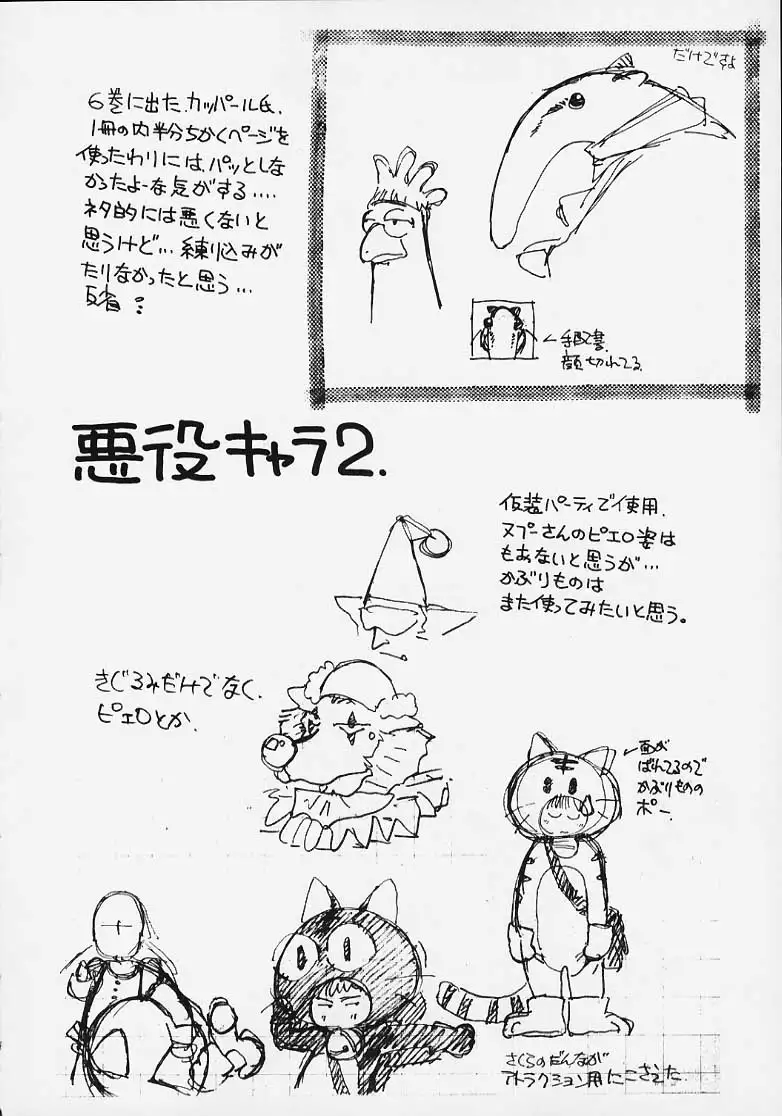 6巻に出た、カッパール氏、
1冊の内半分ちかくページを
使ったわりには、パッとしな
かったよーな気がする‥‥
ネタ的には悪くないと
思うけど…練り込みが
たりなかったと思う…
反省…
だけですよ
←手配書、
顔切れてる
悪役キャラ2.
仮装パーティで使用、
ヌプーさんのピエロ姿は
もぁないと思うが…
かぶりものは
また使ってみたいと思う。
きぐるみだけでなく、
ピエロとか、
←面が
ばれてるので
かぶりものの
ポー、
さくらのだんなが
アトラクション用にこさえた